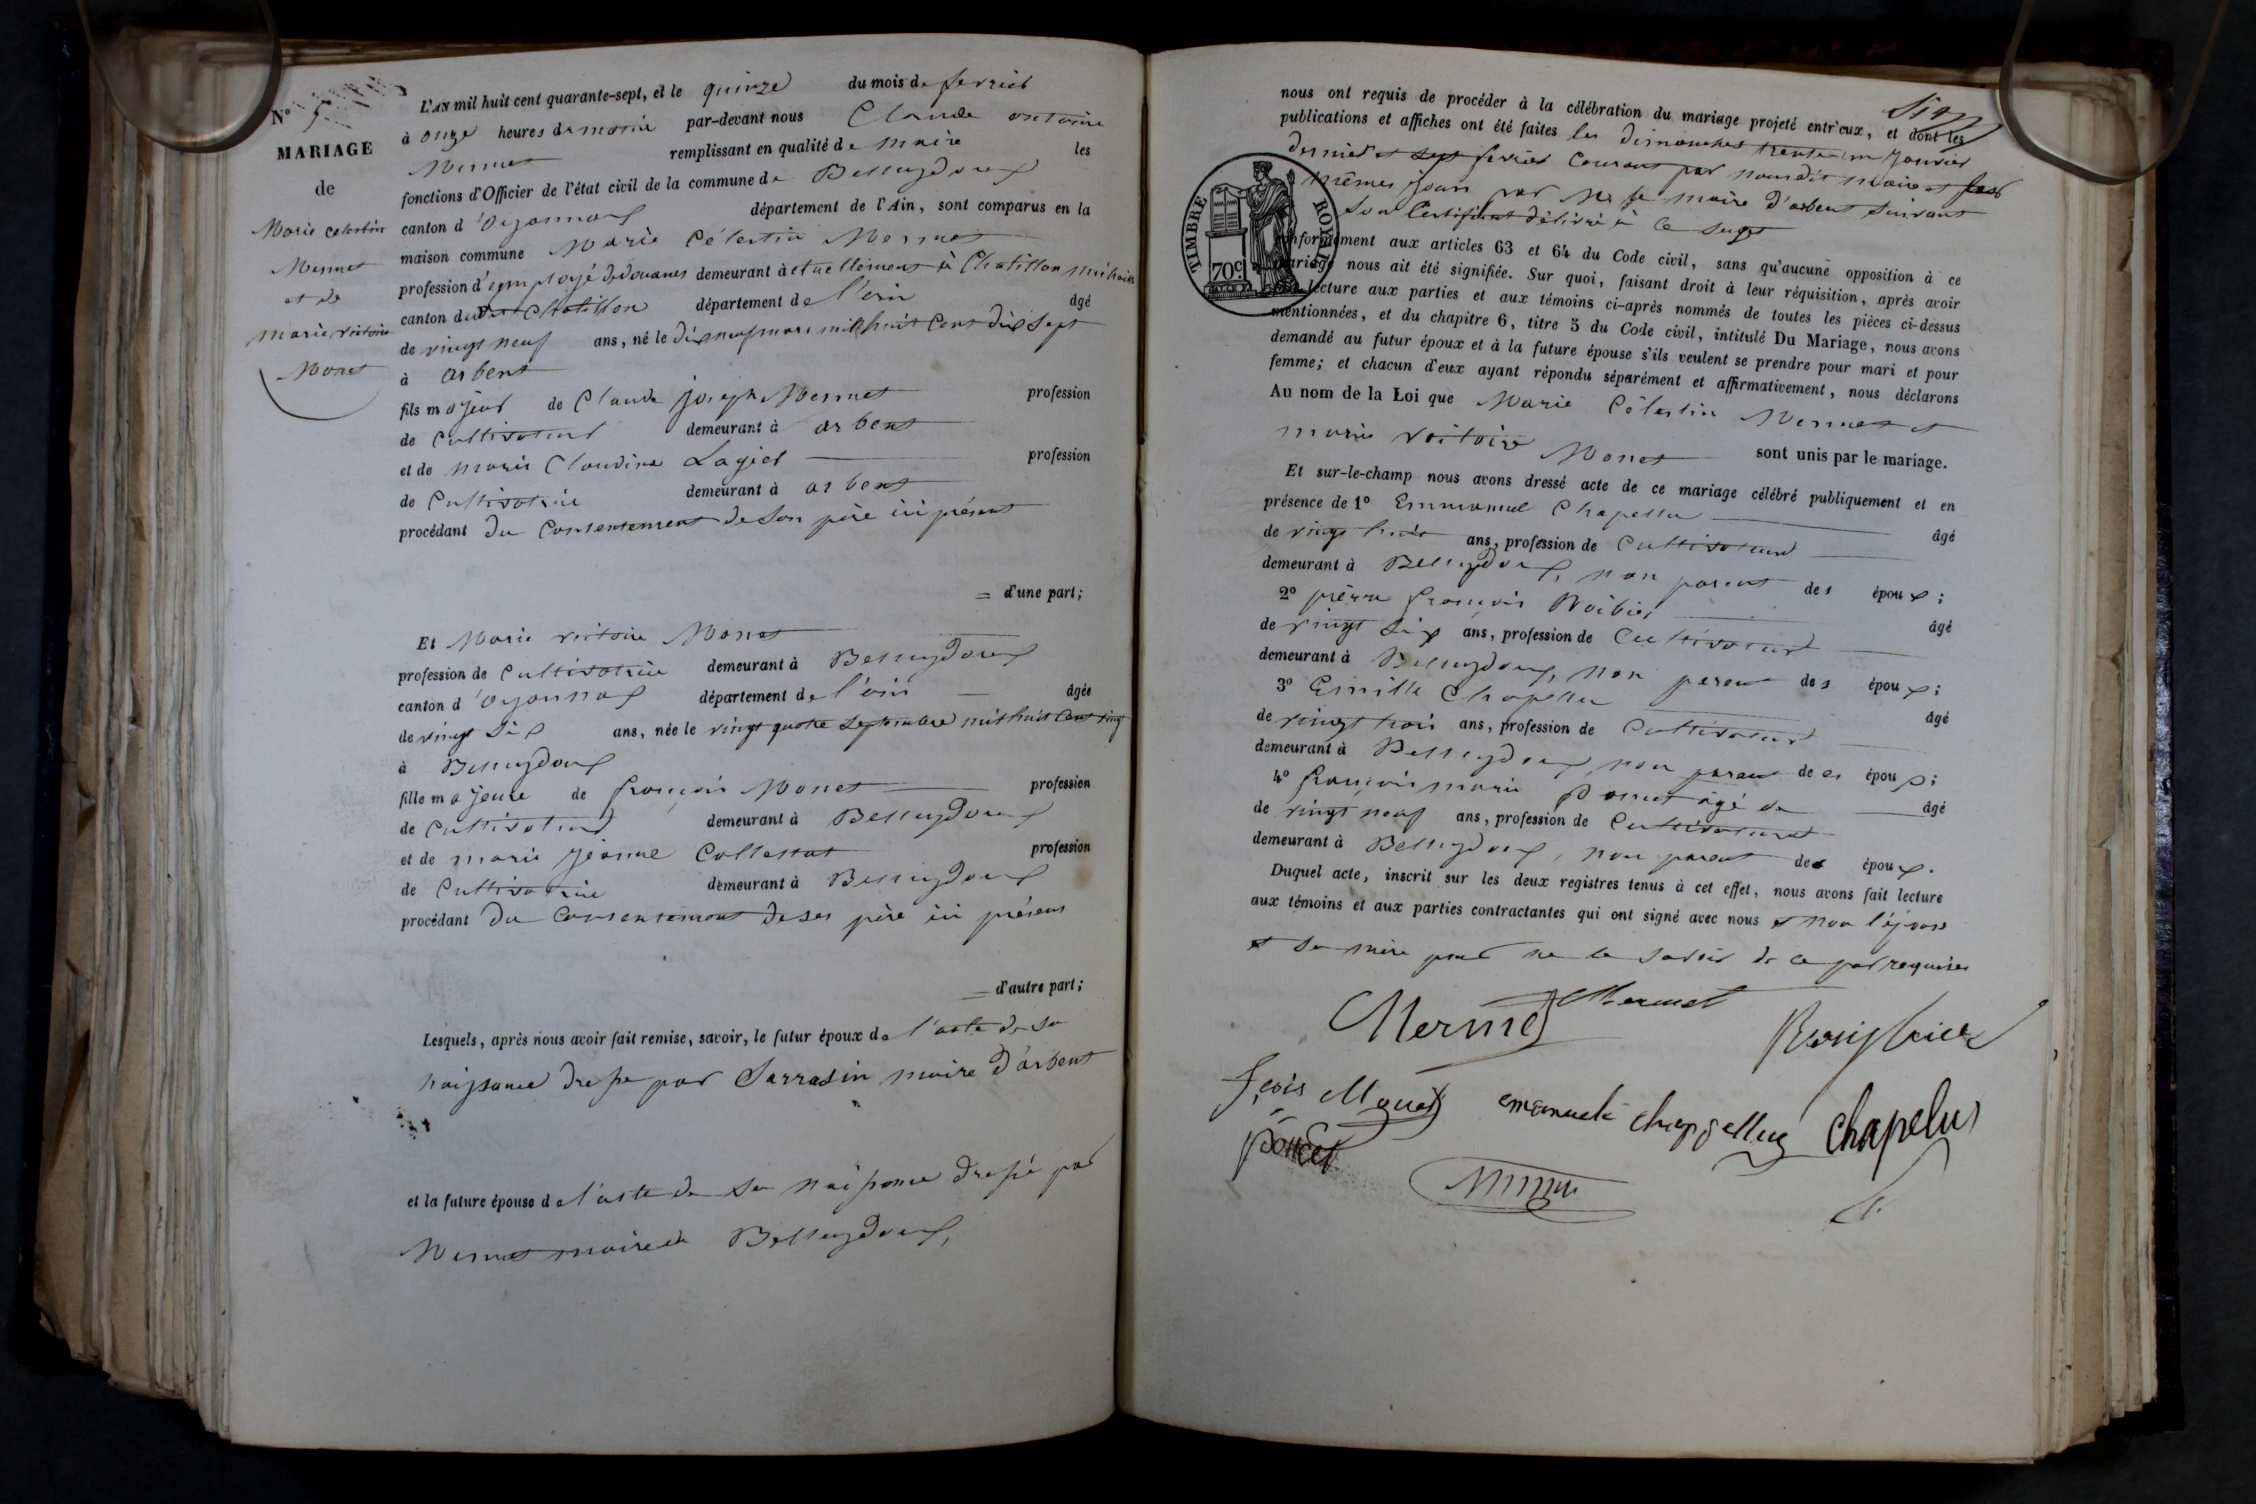 N° 5
MARIAGE
de
Marie Celestin
Mermet
et de
marie victoire
Monet
L'AN mil huit cent quarante-sept, et le quinze du mois de fevrier
à onze heures du matin par-devant nous Claude antoine
Mermet remplissant en qualité de maire les
fonctions d'Officier de l'état civil de la commune de Belleydoux
canton d'oyonnax département de l'Ain, sont comparus en la
maison commune Marie Célestin Mermet
profession d'employé de douanes demeurant actuellement à Chatillon michaille
canton dudit Chatillon département de l'ain âgé
de vingt neuf ans, né le dix neuf mars mil huit cent dix sept
à arbent
fils majeur de Claude joseph Mermet profession
de Cultivateur demeurant à arbent
et de marie Claudine Lagier profession
de Cultivatrice demeurant à arbent
procédant du Consentement de son père ici présent
d'une part;
Et Marie victoire Monet
profession de Cultivatrice demeurant à Belleydoux
canton d'oyonnax département de l'ain âgée
de vingt six ans, née le vingt quatre septembre mil huit cent vingt
à Belleydoux
fille majeure de françois Monet profession
de Cultivateur demeurant à Belleydoux
et de marie jéanne Collettat profession
de Cultivatrice demeurant à Belleydoux
procédant du Consentement de ses père ici présent
d'autre part;
Lesquels, après nous avoir fait remise, savoir, le futur époux de l'acte de sa
naissance dressé par Sarrasin maire d'arbent
et la future épouse de l'acte de sa naissance dressé par
Mermet maire de Belleydoux,
nous ont requis de procéder à la célébration du mariage projeté entr'eux, et dont les
publications et affiches ont été faites les dimanches trente un janvier
dernier et sept fevrier Courant par nous dit maire et
mêmes jours par Mr le maire d'arbent suivant
son Certificat délivré à ce sujet
TIMBRE ROYAL
70c
conformément aux articles 63 et 64 du Code civil, sans qu'aucune opposition à ce
mariage nous ait été signifiée. Sur quoi, faisant droit à leur réquisition, après avoir
lecture aux parties et aux témoins ci-après nommés de toutes les pièces ci-dessus
mentionnées, et du chapitre 6, titre 5 du Code civil, intitulé Du Mariage, nous avons
demandé au futur époux et à la future épouse s'ils veulent se prendre pour mari et pour
femme; et chacun d'eux ayant répondu séparément et affirmativement, nous déclarons
Au nom de la Loi que Marie Célestin Mermet et
marie victoire Monet sont unis par le mariage.
Et sur-le-champ nous avons dressé acte de ce mariage célébré publiquement et en
présence de 1° Emmanuel Chapellu âgé
de vingt huit ans, profession de Cultivateur
demeurant à Belleydoux, non parent des époux;
2° pierre françois âgé
de vingt six ans, profession de Cultivateur
demeurant à Belleydoux, non parent des époux;
3° Emille Chapellu âgé
de vingt trois ans, profession de Cultivateur
demeurant à Belleydoux, non parent des époux;
4° françois marie poncet âgé de âgé
de vingt neuf ans, profession de Cultivateur
demeurant à Belleydoux, non parent des époux.
Duquel acte, inscrit sur les deux registres tenus à cet effet, nous avons fait lecture
aux témoins et aux parties contractantes qui ont signé avec nous et non l'épouse
et sa mère pour ne le savoir de ce par requises
Mermet Mermet
fçois Monet emanuele chapellue Chapelus
poncet
Mermet